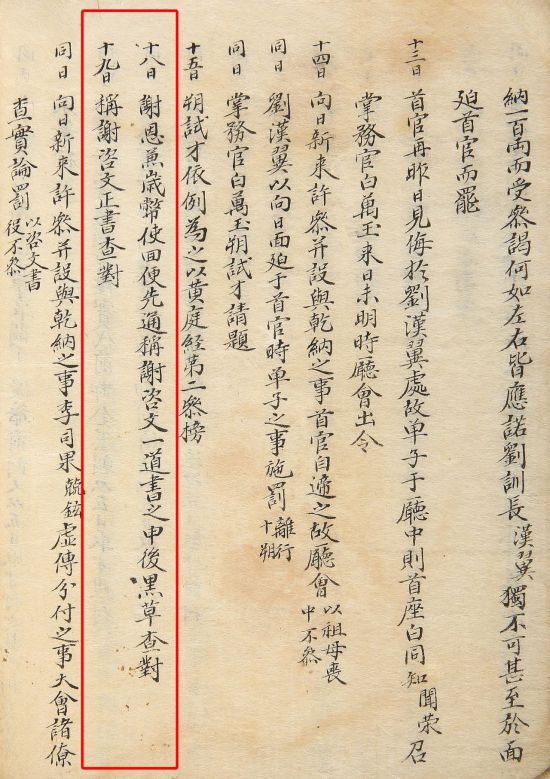 納一百両而受參謁何如左右皆應諾劉訓長漢翼獨不可甚至於面
廹首官而罷
十三日 首官再昨日見侮於劉漢翼處故单子于廳中則首座白同知聞荣召
掌務官白萬玉来日未明時廳會出令
十四日 向日新来許參并設與乾納之事首官白遆之故廳會以祖母喪中不參
同日 劉漢翼以向日面廹于首官時单子之事施罰離行十朔
同日 掌務官白萬玉朔試才請題
十五日 朔試才依例為之以黄庭経第二參榜
十八日 謝恩兼歳幣使回便先通稱謝咨文一道書之申後黒草查對
十九日 稱謝咨文正書查對
同日 向日新来許參并設與乾納之事李司果虚傳分付之事大會諸僚
查實論罰以咨文書役不參